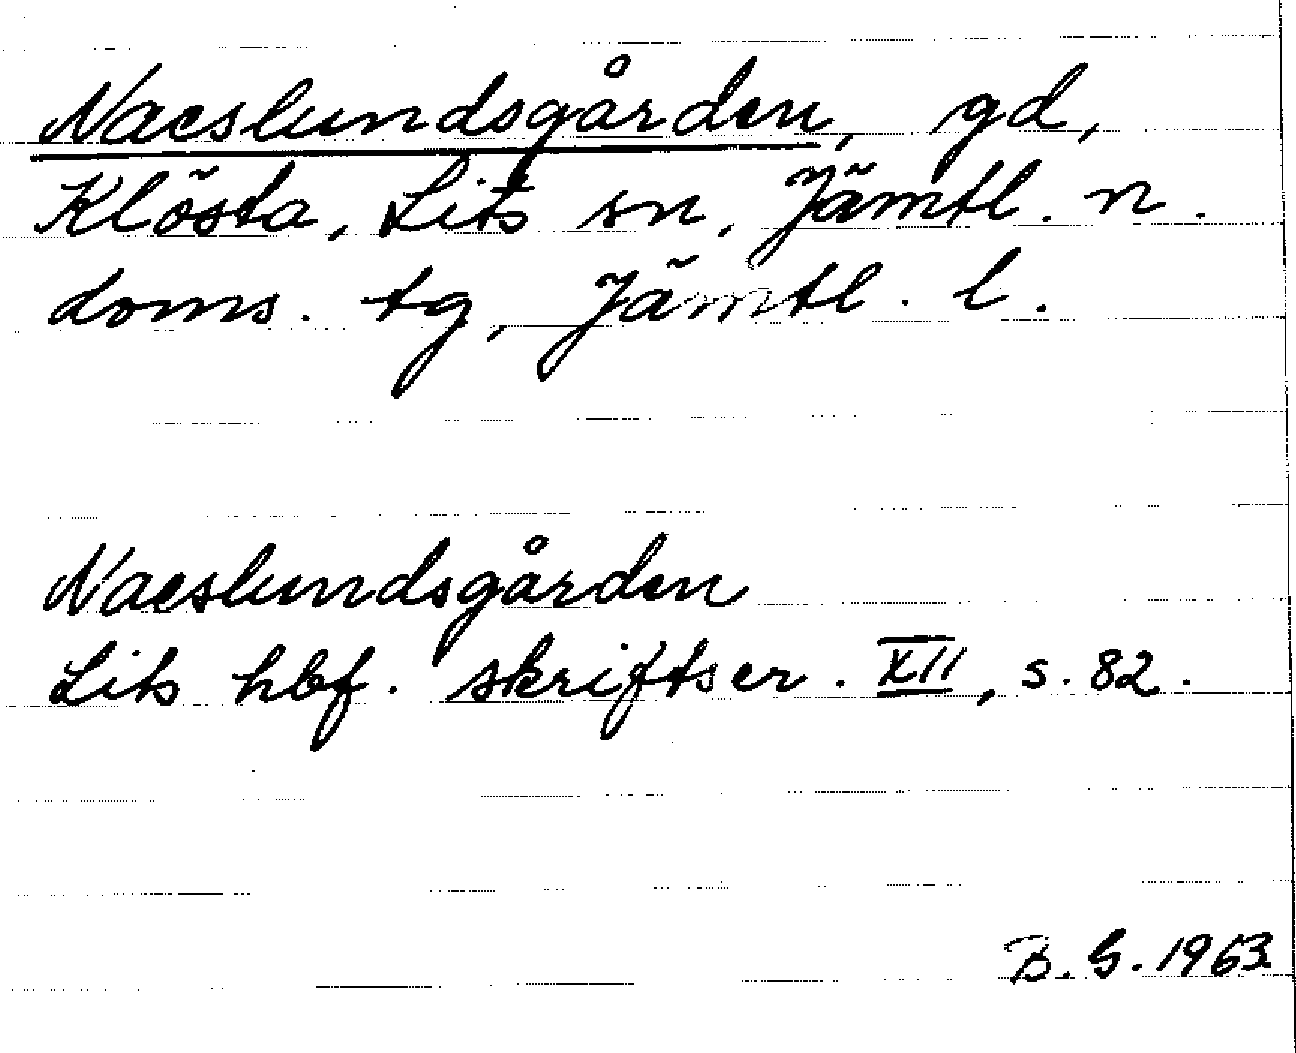 Naeslundsgården, gd,
Klösta, Lits sn, Jämtl. n.
doms. tg, Jämtl. l.
Naeslundsgården
Lits hbf. skriftser. XII, s. 82.
B. G. 1963